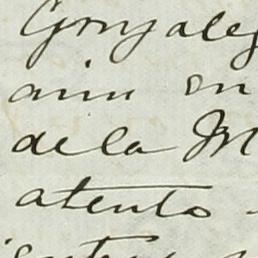 Gonzalez
aun en
de la M
atento